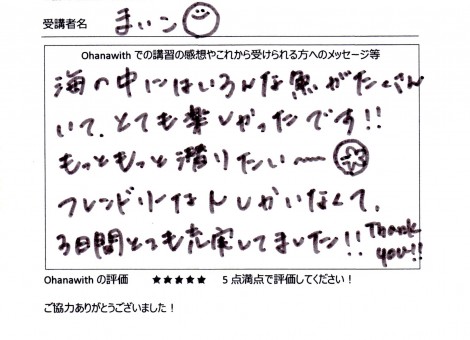 受講者名 まぃこ
Ohanawith での講習の感想やこれから受けられる方へのメッセージ等
海の中にはいろんな魚がたくさん
いて、とても楽しかったです!!
もっともっと潜りたい〜
フレンドリーな人しかいなくて、
3日間とても充実してました!! Thank you!!
Ohanawith の評価 ★★★★★ 5点満点で評価してください!
ご協力ありがとうございました!